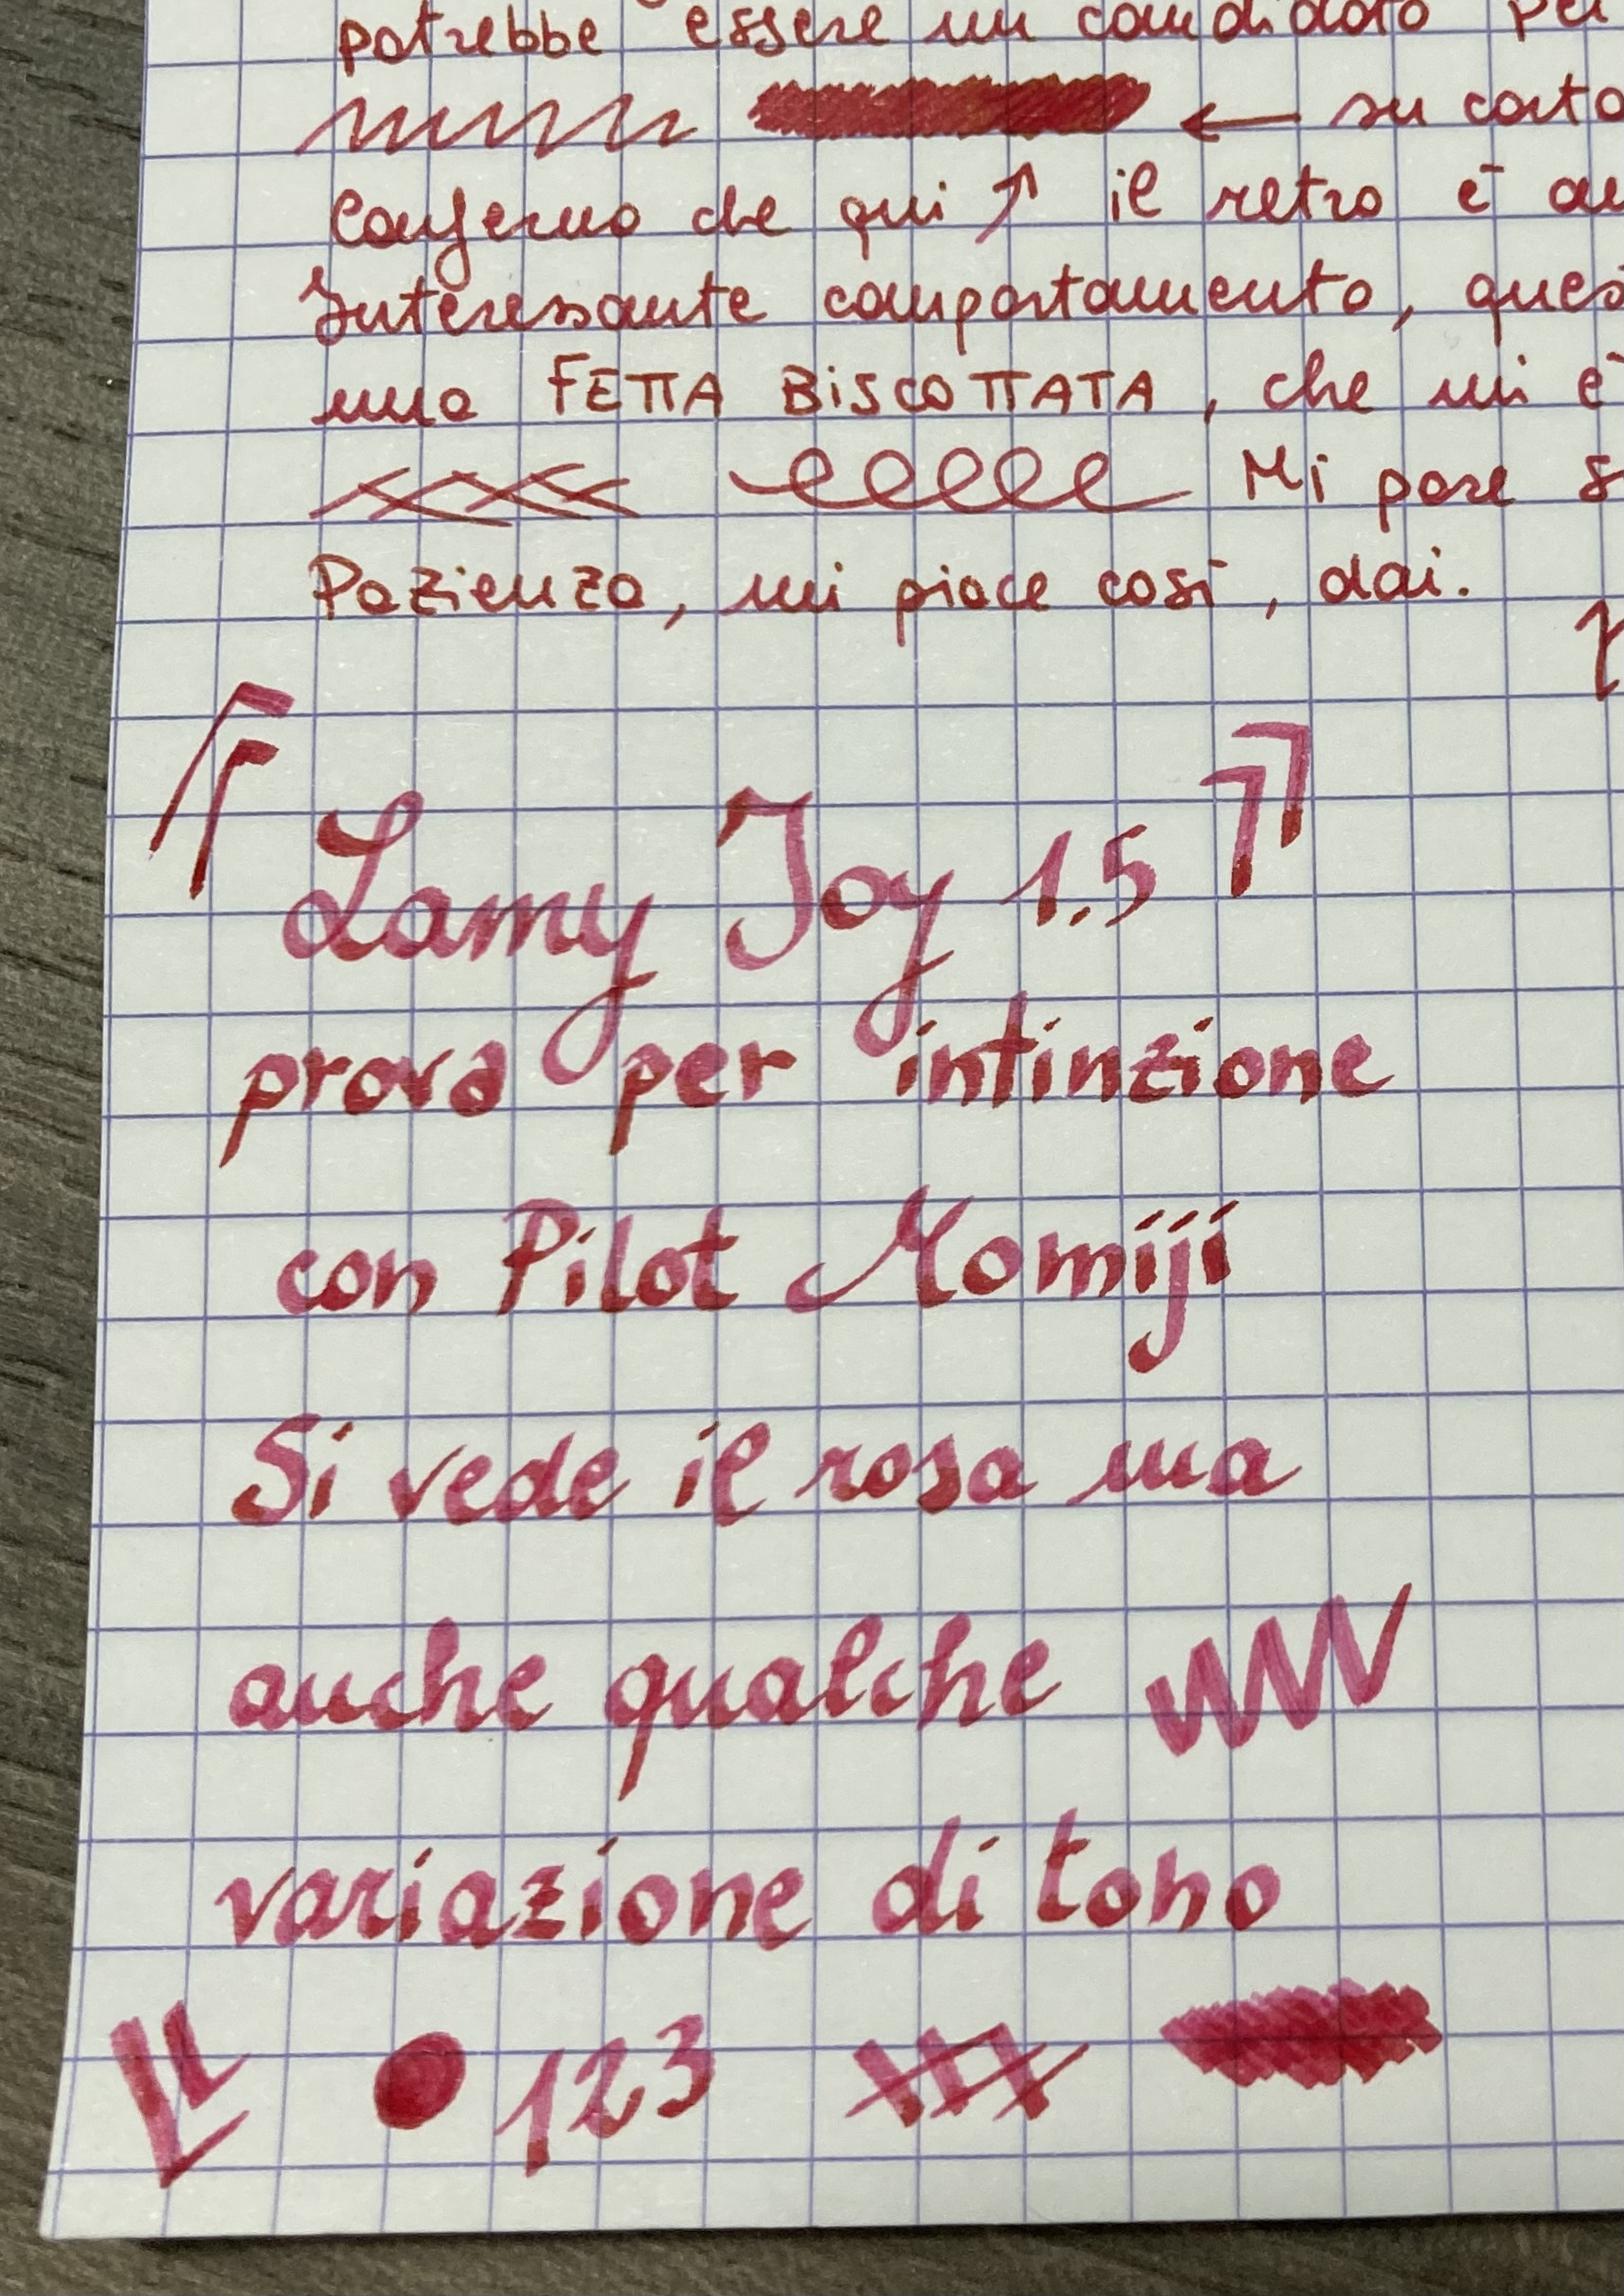 potrebbe essere un candidato per
← su carta
Confermo che qui ↗ il retro è
Interessante comportamento, ques
una FETTA BISCOTTATA, che mi è
Mi pare s
Pazienza, mi piace così, dai.
Lamy Joy 1.5
prova per intinzione
con Pilot Momiji
Si vede il rosa ma
anche qualche
variazione di tono
123